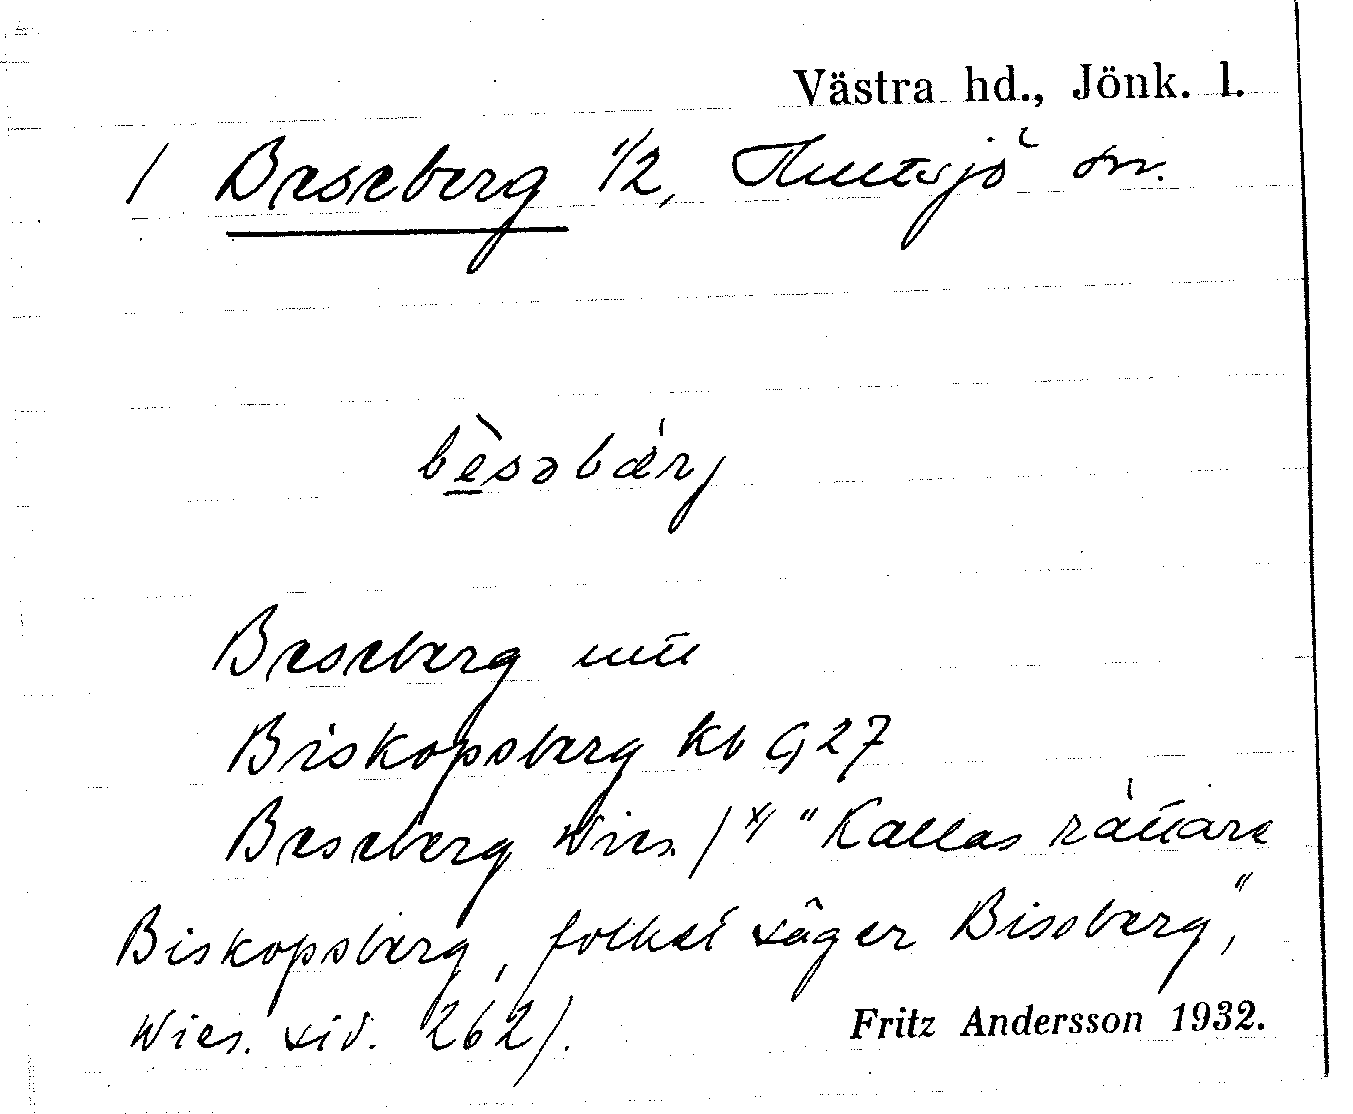 Västra hd., Jönk. l.
/ Beseberg 1/2, Hultsjö sn.
bèsəbǽrj
Beseberg mtl
Biskopsberg kb G 27
Beseberg Wies. / ×/ "Kallas rättare
Biskopsberg, folket säger Bissberg",
Wies. sid. 262/.
Fritz Andersson 1932.